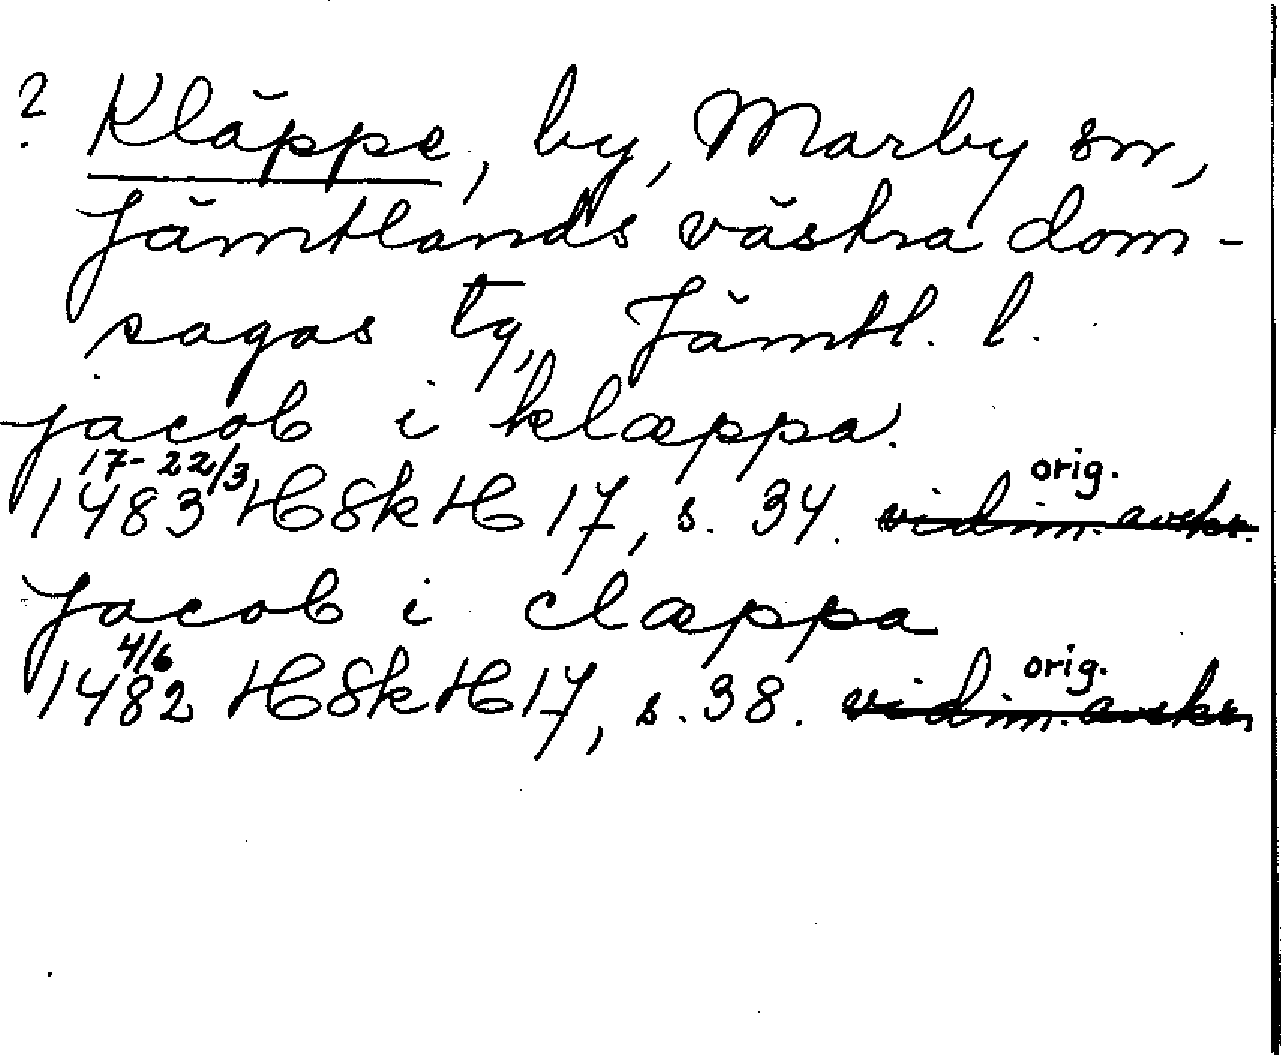 ? Kläppe, by, Marby sn,
Jämtlands västra dom-
sagas tg, Jämtl. l.
jacob i klæppa.
17-22/3 orig.
1483 HSkH 17, s. 34. vidim. avskr.
Jacob i clæppa
4/6 orig.
1482 HSkH 17, s. 38. vidim. avskr.